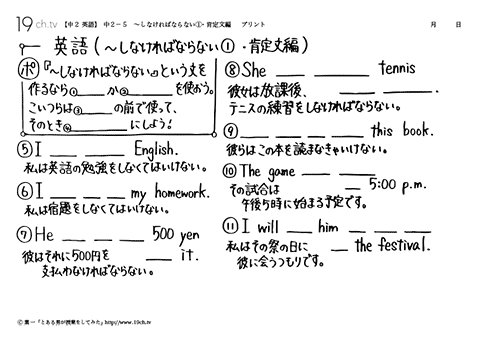 19ch.tv 【中2 英語】 中2-5 ～しなければならない①・肯定文編 プリント 月 日
英語(～しなければならない①・肯定文編)
ポ 『～しなければならない。』という文を
作るなら① ___ か② ___ ___ を使おう。
こいつらは③ ___ の前で使って、
そのとき④ ___ にしよう!
⑤ I ___ ___ ___ English.
私は英語の勉強をしなくてはいけない。
⑥ I ___ ___ ___ my homework.
私は宿題をしなくてはいけない。
⑦ He ___ ___ ___ 500 yen
彼はそれに500円を ___ it.
支払わなければならない。
⑧ She ___ ___ ___ tennis
彼女は放課後、 ___ ___.
テニスの練習をしなければならない。
⑨ ___ ___ ___ this book.
彼らはこの本を読まなきゃいけない。
⑩ The game ___ ___
その試合は ___ 5:00 p.m.
午後5時に始まる予定です。
⑪ I will ___ him ___ ___
私はその祭の日に ___ the festival.
彼に会うつもりです。
© 葉一「とある男が授業をしてみた」http://www.19ch.tv